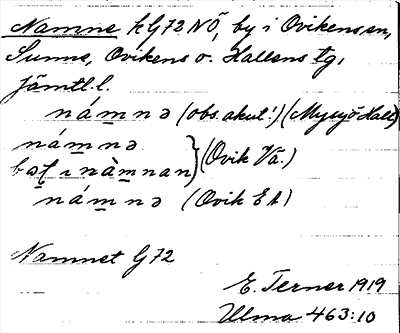 Namne kG72NÖ, by i Ovikens sn,
Sunne, Ovikens o. Hallens tg,
Jämtl. l.
námnə (obs. akut!) (Myssjö Hall)
námnə
bal ı nàmnan } (Ovik Vä.)
námnə (Ovik Ek)
Namnet G72
E. Terner 1919
Ulma 463:10